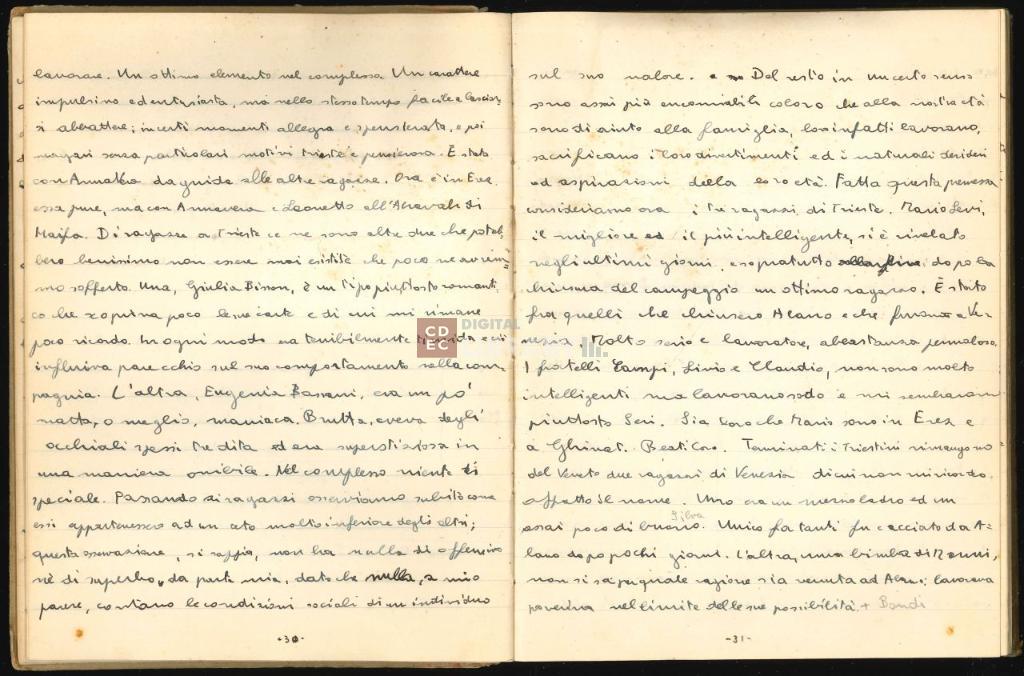 lavorare. Un ottimo elemento nel complesso. Un carattere
impulsivo ed entusiasta, ma nello stesso tempo facile a lasciar-
si abbattere; in certi momenti allegra e spensierata, e poi
magari senza particolari motivi triste e pensierosa. È stata
con Annalia da guida alle altre ragazze. Ora è in Erez
essa pure, ma con Annavera e Leonetto all'
Haifa. Di ragazze a Trieste ce ne sono altre due che poteb-
bero benissimo non essere mai esistite che poco ne avrem-
mo sofferto. Una, Giulia Bison, è un tipo piuttosto romanti-
co che scopriva poco le sue carte e di cui mi rimane
poco ricordo. In ogni modo era terribilmente timida e ciò
influiva parecchio sul suo comportamento nella com-
pagnia. L'altra, Eugenia Bassani, era un po'
matta, o meglio, maniaca. Brutta, aveva degli
occhiali spessi tre dita ed era superstiziosa in
una maniera orribile. Nel complesso niente di
speciale. Passando ai ragazzi osserviamo subito come
essi appartenessero ad un ceto molto inferiore degli altri;
questa osservazione, si sappia, non ha nulla di offensivo
nè di superbo, da parte mia, dato che nulla, a mio
parere, contano le condizioni sociali di un individuo
-30-
sul suo valore. Del resto in un certo senso
sono assai più encomiabili coloro che alla nostra età
sono di aiuto alla famiglia, loro infatti lavorano,
sacrificano i loro divertimenti ed i naturali desideri
ed aspirazioni della loro età. Fatta questa premessa
consideriamo ora i tre ragazzi di Trieste. Mario Levi,
il migliore ed il più intelligente, si è rivelato
negli ultimi giorni, e sopratutto dopo la
chiusura del campeggio un ottimo ragazzo. È stato
fra quelli che chiusero Alano e che furono a Ve-
nezia. Molto serio e lavoratore, abbastanza permaloso.
I fratelli Livio e Claudio, non sono molto
intelligenti ma lavorano sodo e mi sembrarono
piuttosto seri. Sia loro che Mario sono in Erez e
a Ghinat. Beati loro. Terminati i Triestini rimangono
del Veneto due ragazzi di Venezia di cui non mi ricordo
affatto il nome. Uno era un mezzo ladro ed un
Silva
assai poco di buono. Unico fra tanti fu cacciato da A-
lano dopo pochi giorni. L'altra, una bimba di 12 anni,
non si sa per quale ragione sia venuta ad Alano; lavorava
poverina nel limite delle sue possibilità. + Bondi
-31-
CD
EC
DIGITAL